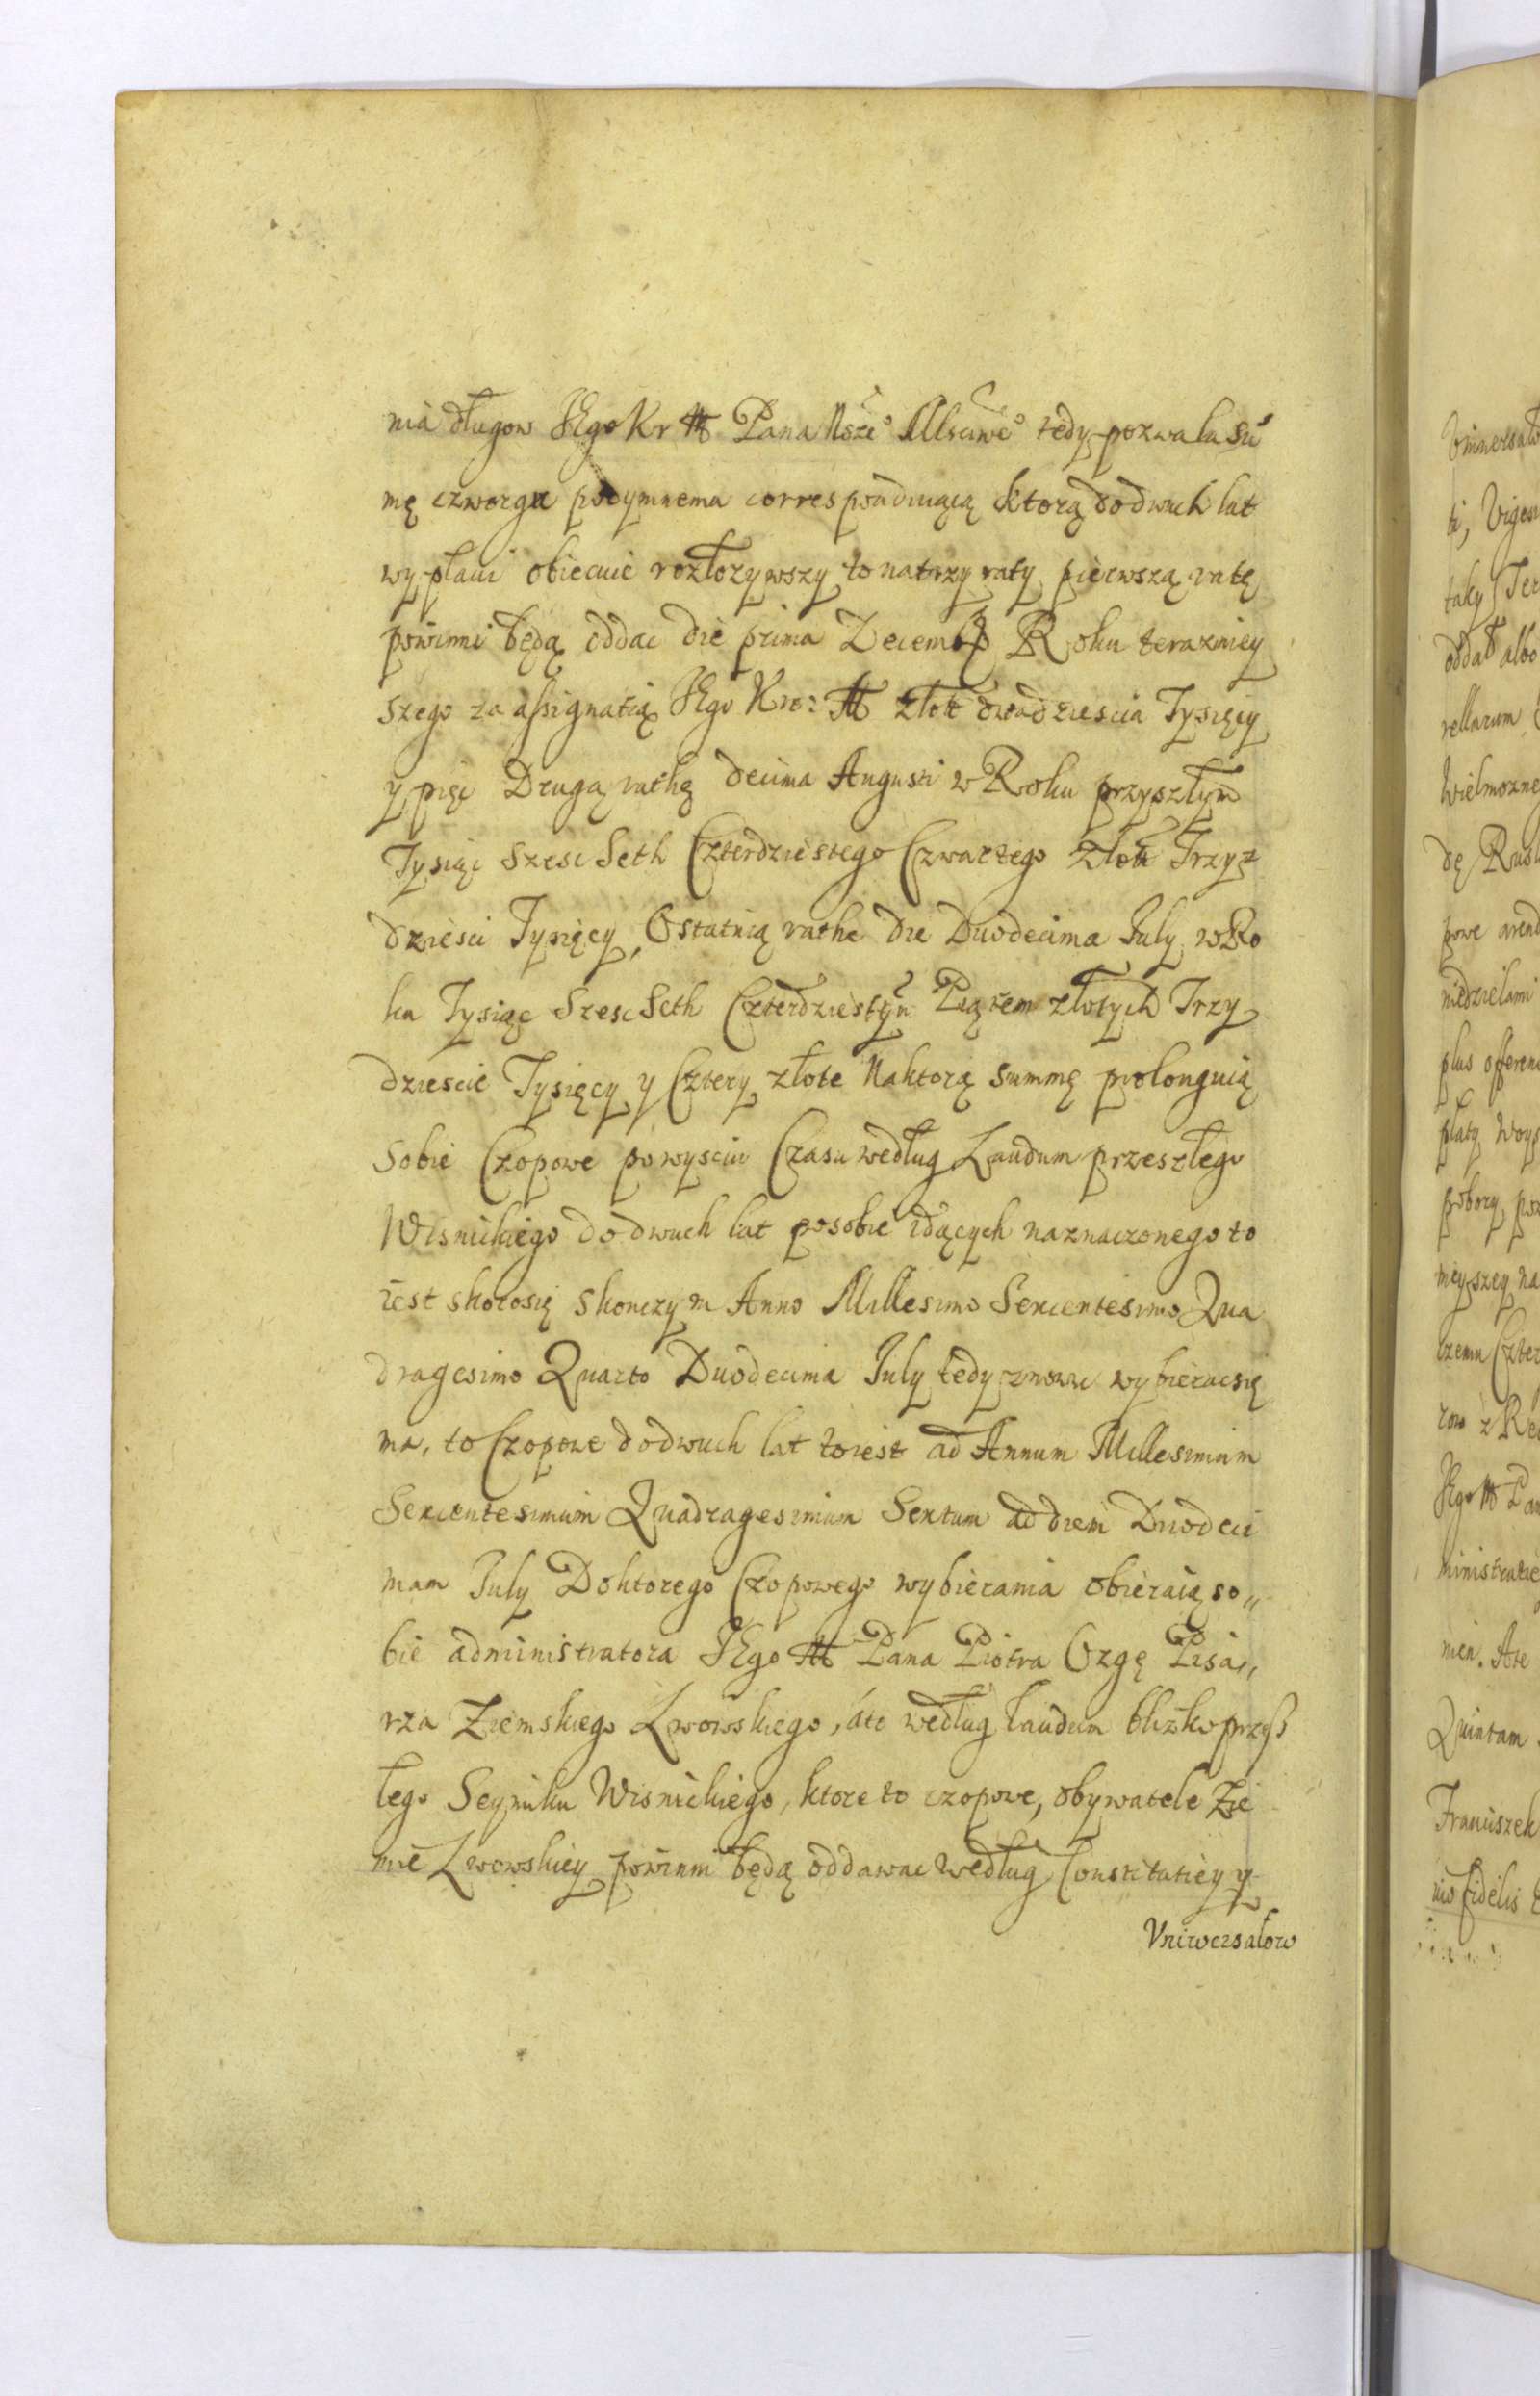 nia długow JEgo Kr M Pana Nsze° Mſciwe° tedy pozwala su
mę czworgu podymnemu correspondiuącą ktorą do dwuch lat
wypłaci obiecuie rozłozywszy to na trzy raty pierwszą ratę
powinni będą oddac die prima Decemb Roku terazniey
szego za assignatią JEgo Kro: M złot dwadziescia Tysięcy
y pięc Drugą rathę decima Augusti w Roku przyszłym
Tysiąc Szesc Seth Czterdziestego Czwartego złott Trzy
dziesci Tysięcy, Ostatnią rathe die Duodecima July w Ro
ku Tysiąc Szesc Seth Czterdziestym Piątem złotych Trzy
dziescie Tysięcy y Cztery złote Na ktorą summę prolonguią
Sobie Czopowe po wysciu Czasu według Laudum przeszłego
Wisnickiego do dwuch lat po sobie idących naznaczonego to
iest skoro się skonczy in Anno Millesimo Sexcentesimo Qua
dragesimo Quarto Duodecima July tedy znowu wybierac się
ma, to Czopowe do dwuch lat to iest ad Annum Millesimum
Sexcentesimum Quadragesimum Sextum ad diem Duodeci
mam July Do ktorego Czopowego wybierania obieraią so„
bie administratora JEgo M Pana Piotra Ozgę Pisa„
rza Ziemskiego Lwowskiego, áto według laudum blizko przesz
łego Seymiku Wisnickiego, ktore to czopowe, obywatele Zie
mie Lwowskiey powinni będą oddawac według Constitutiey y
Vniwersałow